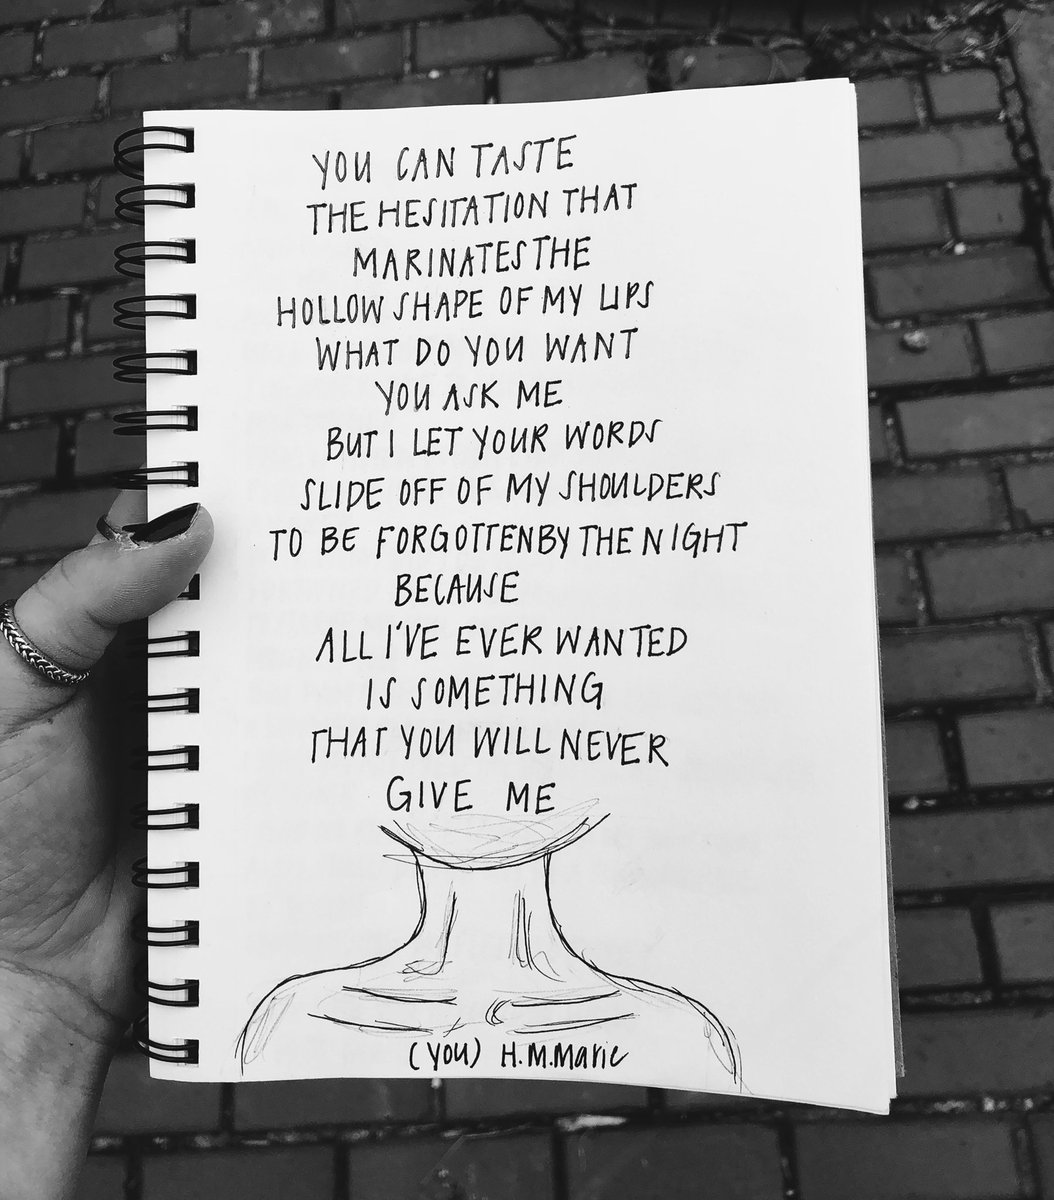 YOU CAN TASTE
THE HESITATION THAT
MARINATES THE
HOLLOW SHAPE OF MY LIPS
WHAT DO YOU WANT
YOU ASK ME
BUT I LET YOUR WORDS
SLIDE OFF OF MY SHOULDERS
TO BE FORGOTTEN BY THE NIGHT
BECAUSE
ALL I'VE EVER WANTED
IS SOMETHING
THAT YOU WILL NEVER
GIVE ME
(YOU) H.M.Marie